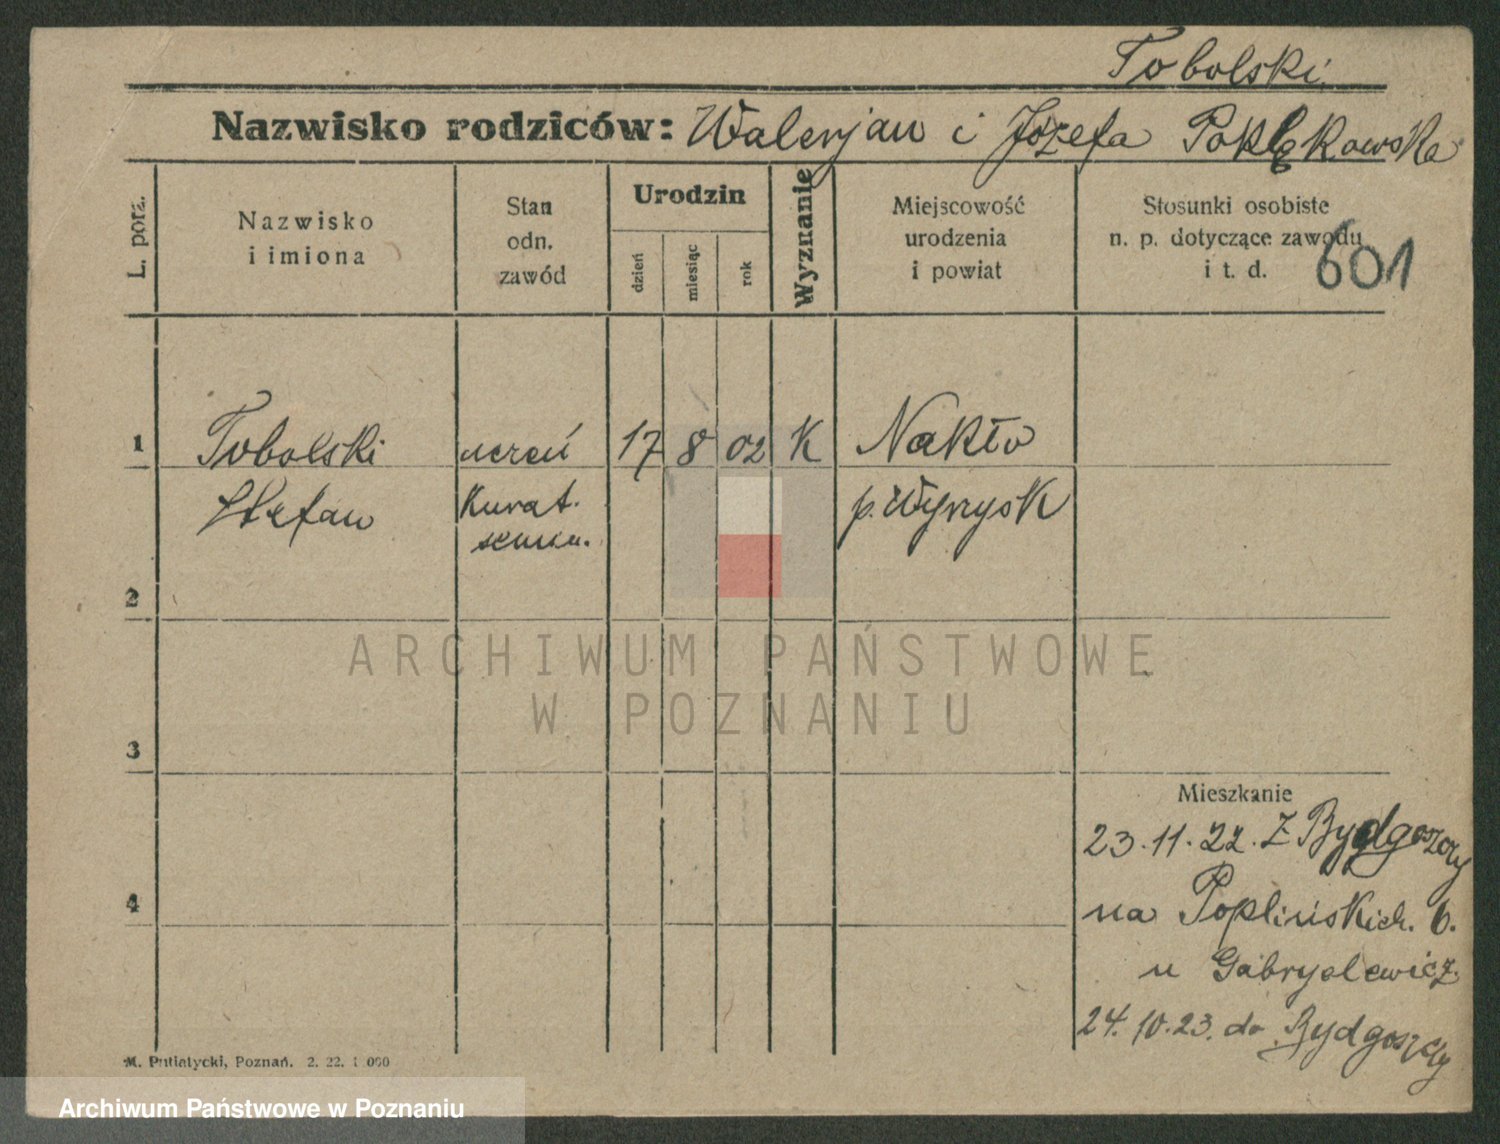 Tobolski.
Nazwisko rodziców: Waleryan i Józefa Poklękowska
L. porz.
Nazwisko
i imiona
Stan
odn.
zawód
Urodzin
dzień
miesiąc
rok
Wyznanie
Miejscowość
urodzenia
i powiat
Stosunki osobiste
n. p. dotyczące zawodu
i t. d.
601
1
Tobolski
uczeń
17
8
02
K
Nakło
Stefan
Kurat.
p. Wyrzysk
2
3
4
Mieszkanie
23.11.22. Z Bydgoszczy
na Poplińskich. 6.
u Gabryelewicz.
24.10.23. do Bydgoszczy
M. Putiatycki, Poznań. 2. 22. 1 000
ARCHIWUM PAŃSTWOWE
W POZNANIU
Archiwum Państwowe w Poznaniu